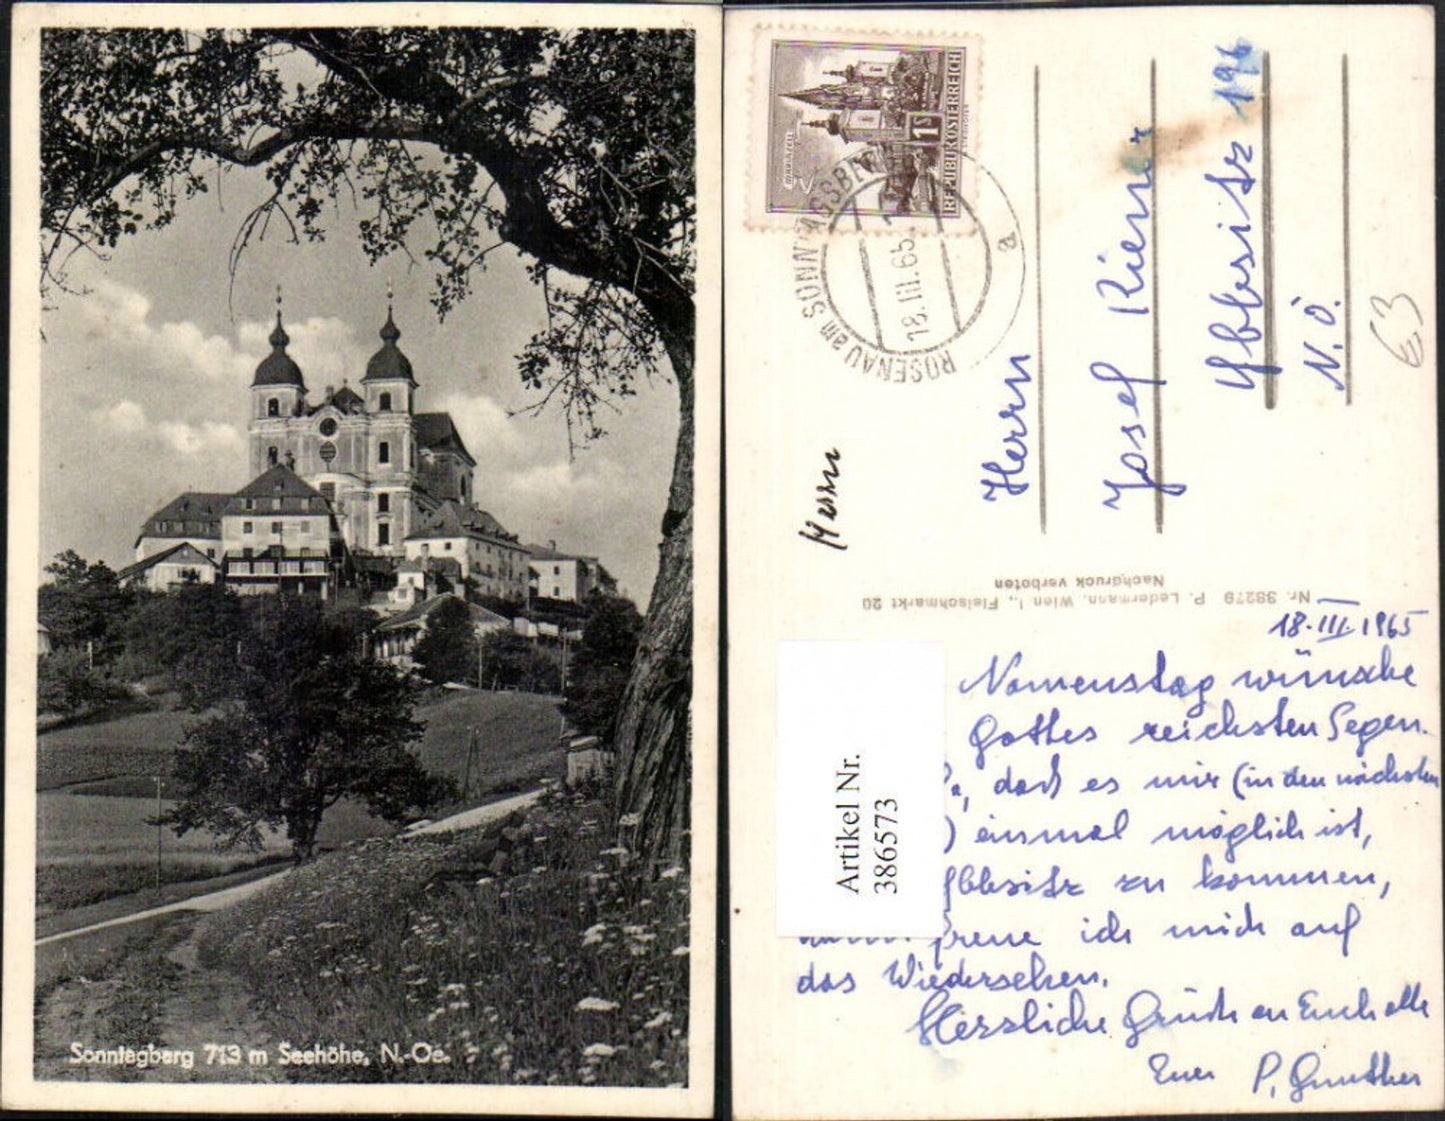 Sonntagberg 713 m Seehöhe, N.-Oe.
REPUBLIK ÖSTERREICH
1 S
MARIAZELL
ROSENAU am SONNTAGSBERG
18.III.65
a
Herrn
Herrn
Josef
Ybbsitz 196
N.Ö.
63
Nr. 38279 P. Ledermann, Wien I., Fleischmarkt 20
Nachdruck verboten
18.III.1965
Namenstag wünsche
Gottes reichsten Segen.
daß es mir (in den nächsten
) einmal möglich ist,
Ybbsitz zu kommen,
freue ich mich auf
das Wiedersehen.
Herzliche Grüße an Euch alle
Euer P. Gunther
Artikel Nr.
386573